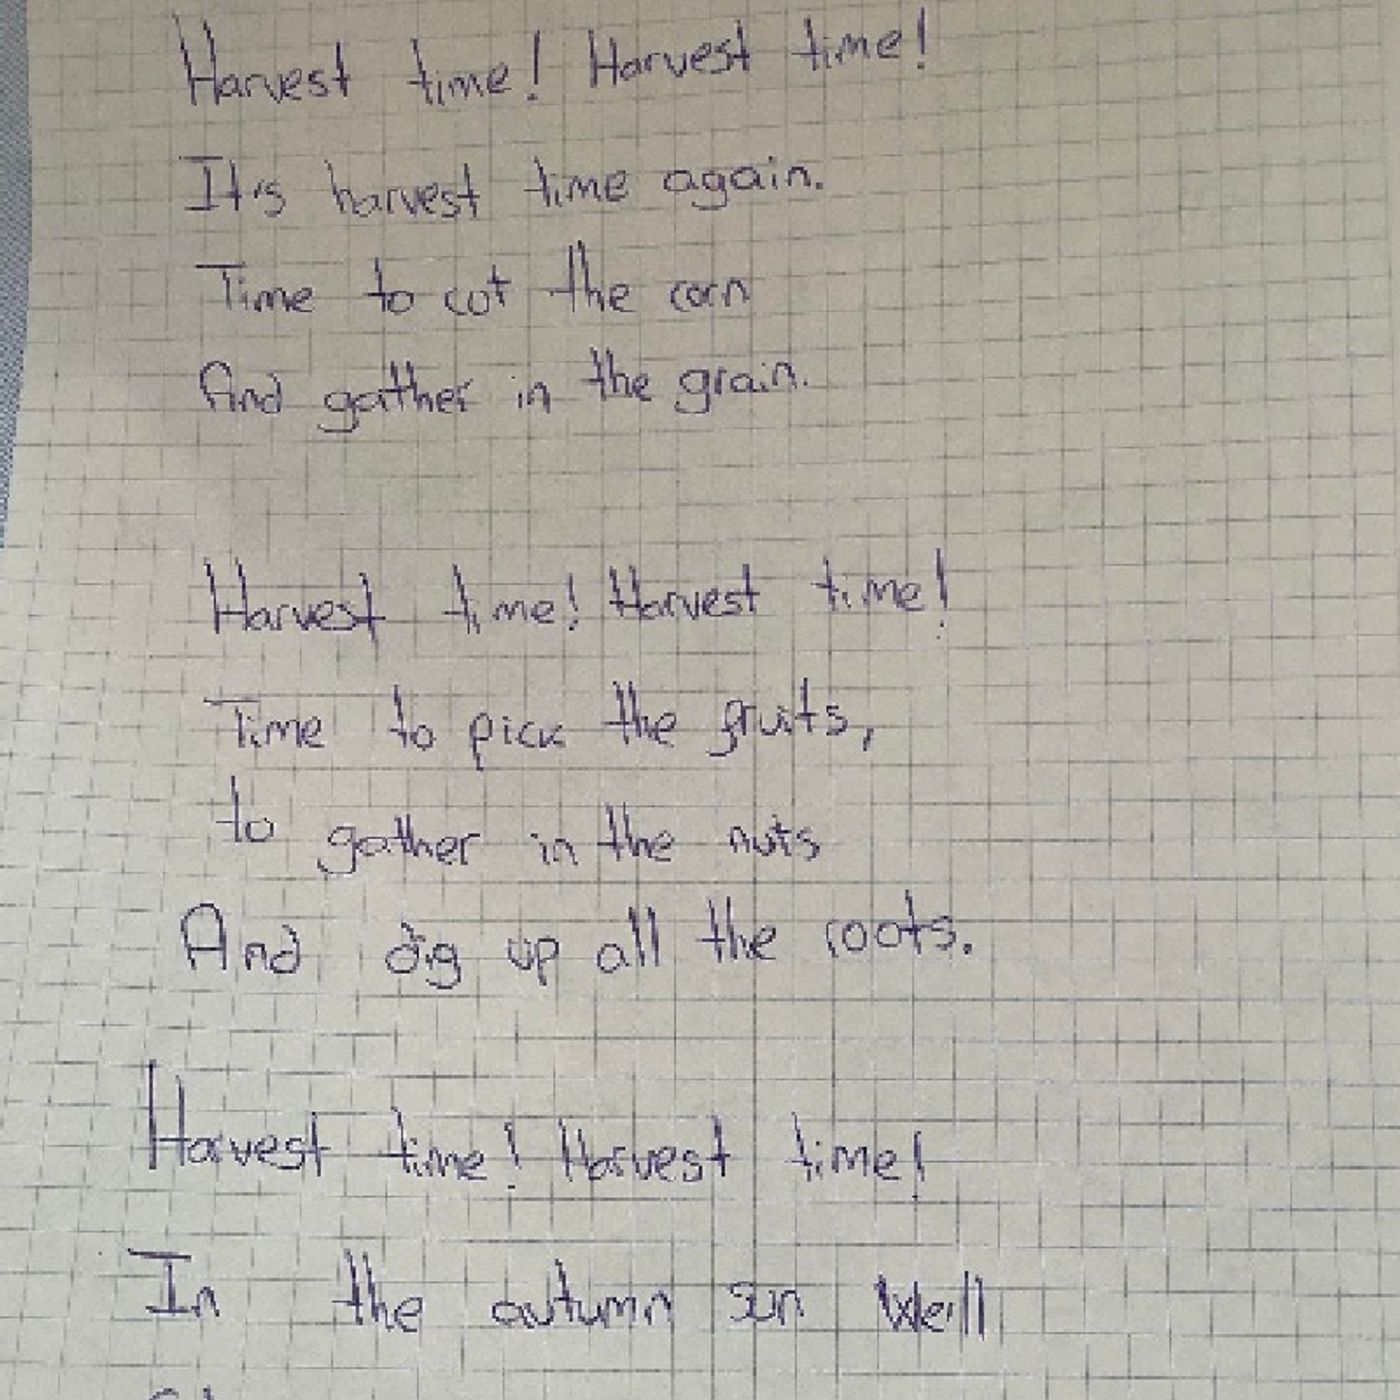 Harvest time! Harvest time!
It's harvest time again.
Time to cut the corn
And gather in the grain.
Harvest time! Harvest time!
Time to pick the fruits,
to gather in the nuts
And dig up all the roots.
Harvest time! Harvest time!
In the autumn sun We'll